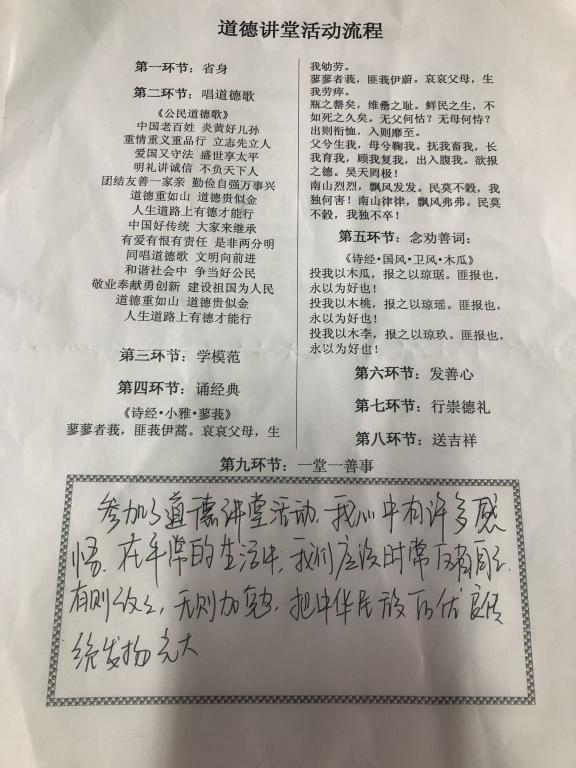 道德讲堂活动流程
第一环节：省身
第二环节：唱道德歌
《公民道德歌》
中国老百姓 炎黄好儿孙
重情重义重品行 立志先立人
爱国又守法 盛世享太平
明礼讲诚信 不负天下人
团结友善一家亲 勤俭自强万事兴
道德重如山 道德贵似金
人生道路上有德才能行
中国好传统 大家来继承
有爱有恨有责任 是非两分明
同唱道德歌 文明向前进
和谐社会中 争当好公民
敬业奉献勇创新 建设祖国为人民
道德重如山 道德贵似金
人生道路上有德才能行
第三环节：学模范
第四环节：诵经典
《诗经•小雅•蓼莪》
蓼蓼者莪，匪我伊蒿。哀哀父母，生
我劬劳。
蓼蓼者莪，匪我伊蔚。哀哀父母，生
我劳瘁。
瓶之罄矣，维罍之耻。鲜民之生，不
如死之久矣。无父何怙？无母何恃？
出则衔恤，入则靡至。
父兮生我，母兮鞠我。抚我畜我，长
我育我，顾我复我，出入腹我。欲报
之德。昊天罔极！
南山烈烈，飘风发发。民莫不穀，我
独何害！南山律律，飘风弗弗。民莫
不穀，我独不卒！
第五环节：念劝善词：
《诗经•国风•卫风•木瓜》
投我以木瓜，报之以琼琚。匪报也，
永以为好也！
投我以木桃，报之以琼瑶。匪报也，
永以为好也！
投我以木李，报之以琼玖。匪报也，
永以为好也！
第六环节：发善心
第七环节：行崇德礼
第八环节：送吉祥
第九环节：一堂一善事
参加了道德讲堂活动，我心中有许多感
悟。在平常的生活中，我们应该时常反省自己，
有则改之，无则加勉，把中华民族的优良传
统发扬光大